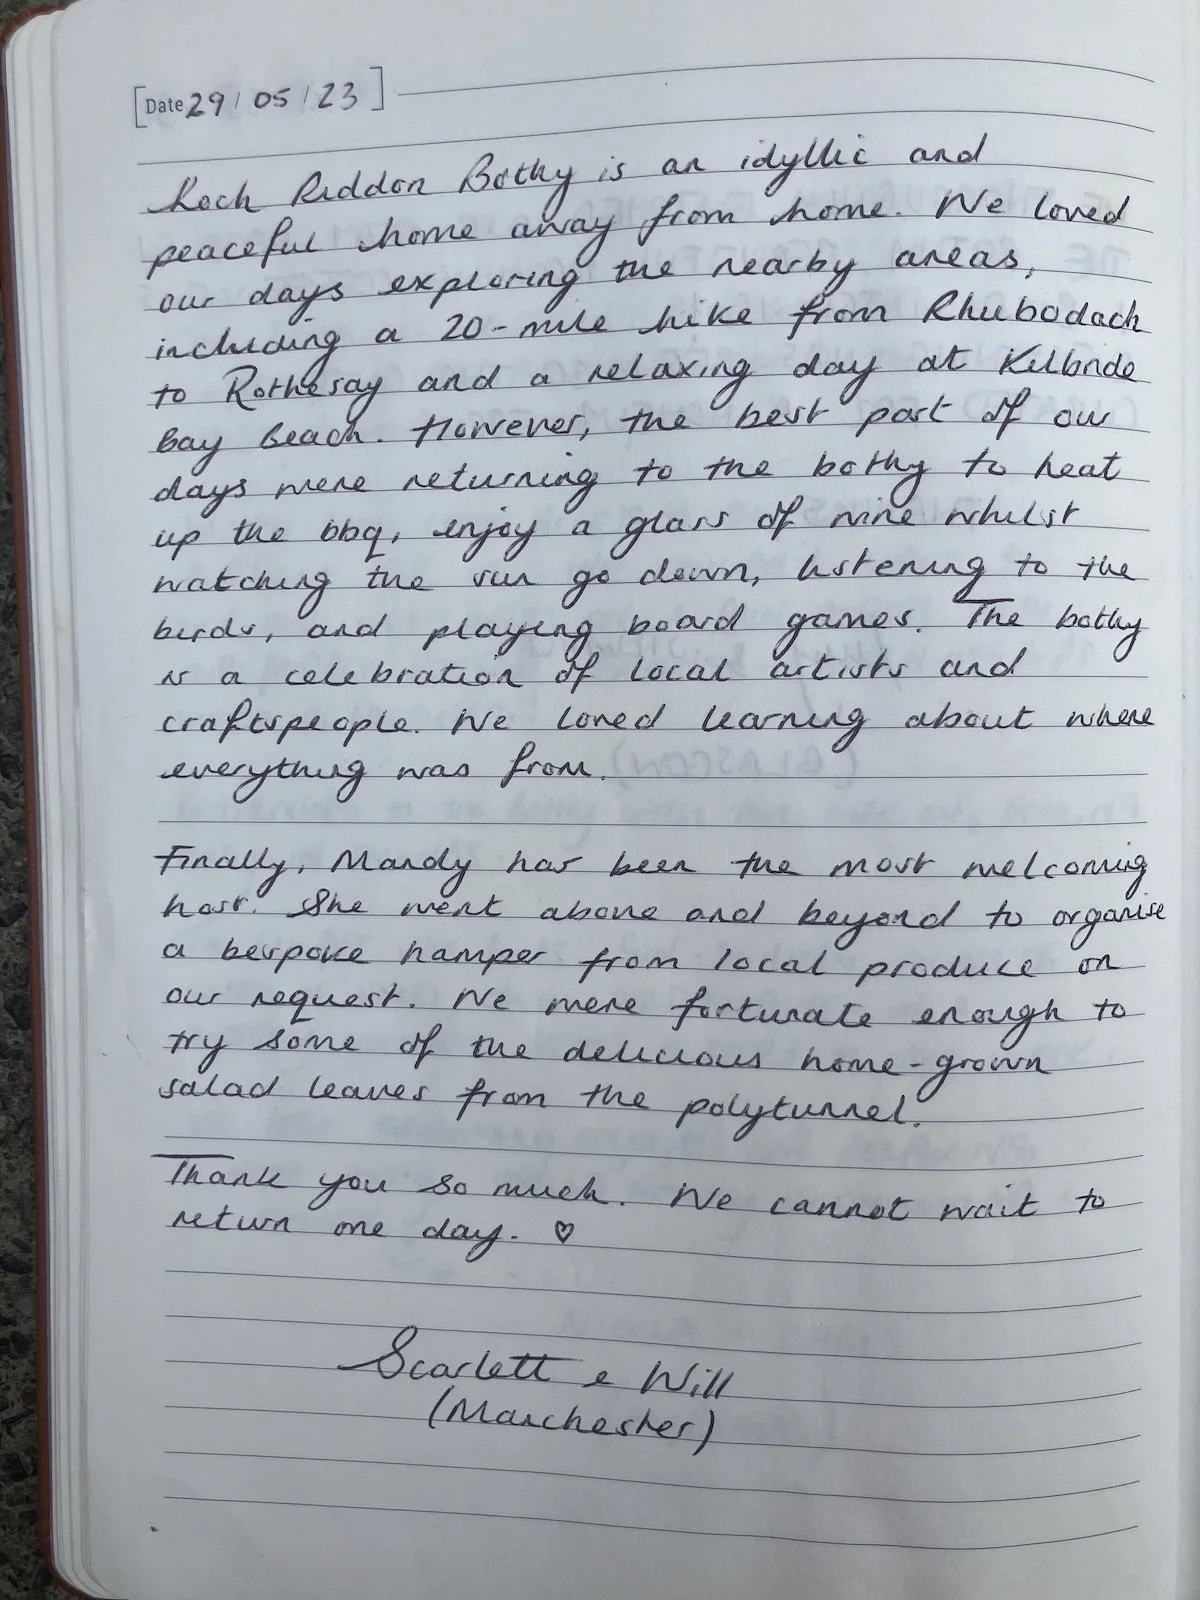 [Date 29 / 05 / 23]
Loch Riddon Bothy is an idyllic and
peaceful home away from home. We loved
our days exploring the nearby areas,
including a 20-mile hike from Rhubodach
to Rothesay and a relaxing day at Kilbride
Bay Beach. However, the best part of our
days were returning to the bothy to heat
up the bbq, enjoy a glass of wine whilst
watching the sun go down, listening to the
birds, and playing board games. The bothy
is a celebration of local artists and
craftspeople. We loved learning about where
everything was from.
Finally, Mandy has been the most welcoming
host. She went above and beyond to organise
a bespoke hamper from local produce on
our request. We were fortunate enough to
try some of the delicious home-grown
salad leaves from the polytunnel.
Thank you so much. We cannot wait to
return one day. ♡
Scarlett & Will
(Manchester)